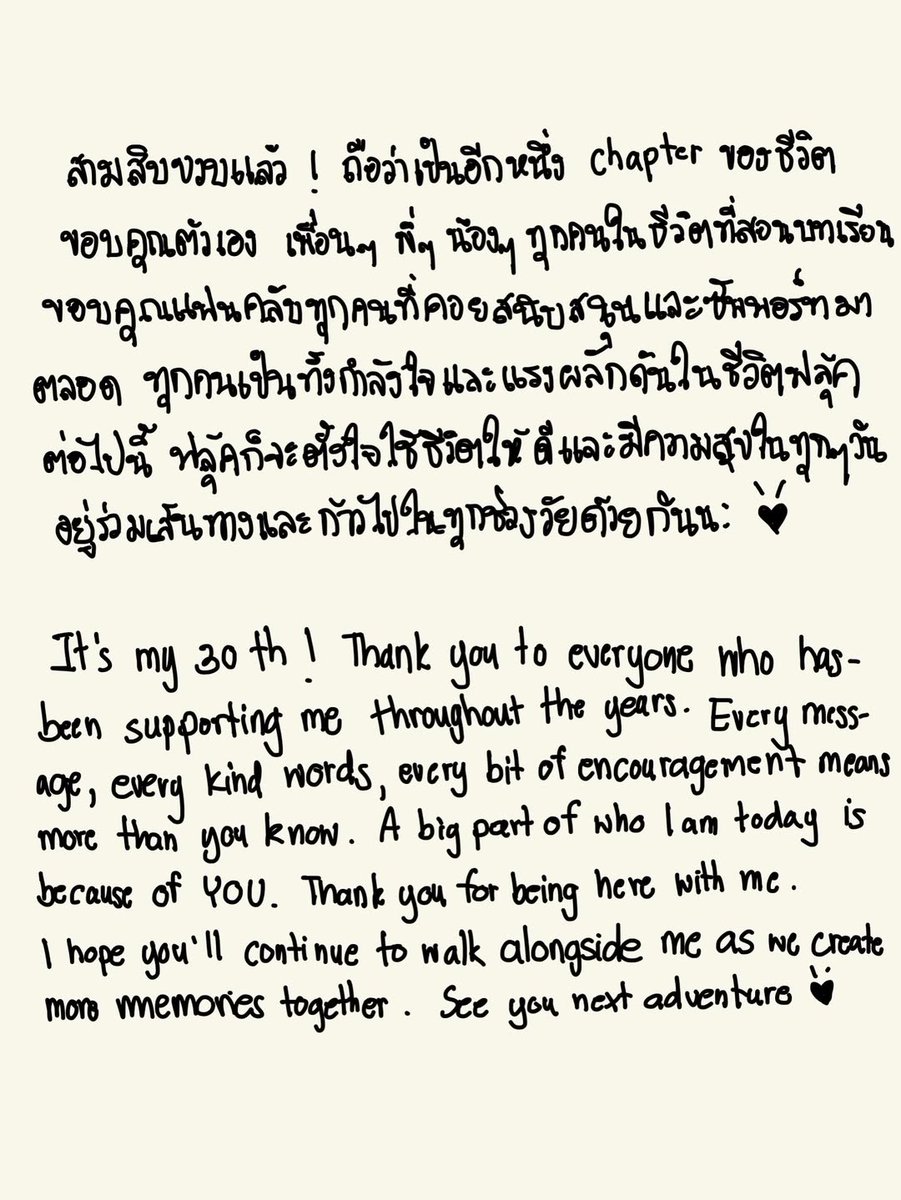 สามสิบขวบแล้ว ! ถือว่าเป็นอีกหนึ่ง chapter ของชีวิต
ขอบคุณตัวเอง เพื่อนๆ พี่ๆ น้องๆ ทุกคนในชีวิตที่สอนบทเรียน
ขอบคุณแฟนคลับทุกคนที่คอยสนับสนุนและซัพพอร์ทมา
ตลอด ทุกคนเป็นทั้งกำลังใจและแรงผลักดันในชีวิตฟลุ๊ค
ต่อไปนี้ ฟลุ๊คก็จะตั้งใจใช้ชีวิตให้ดีและมีความสุขในทุกๆวัน
อยู่ร่วมเส้นทางและก้าวไปในทุกช่วงวัยด้วยกันนะ ♥
It's my 30th! Thank you to everyone who has-
been supporting me throughout the years. Every mess-
age, every kind words, every bit of encouragement means
more than you know. A big part of who I am today is
because of YOU. Thank you for being here with me.
I hope you'll continue to walk alongside me as we create
more memories together. See you next adventure ♥